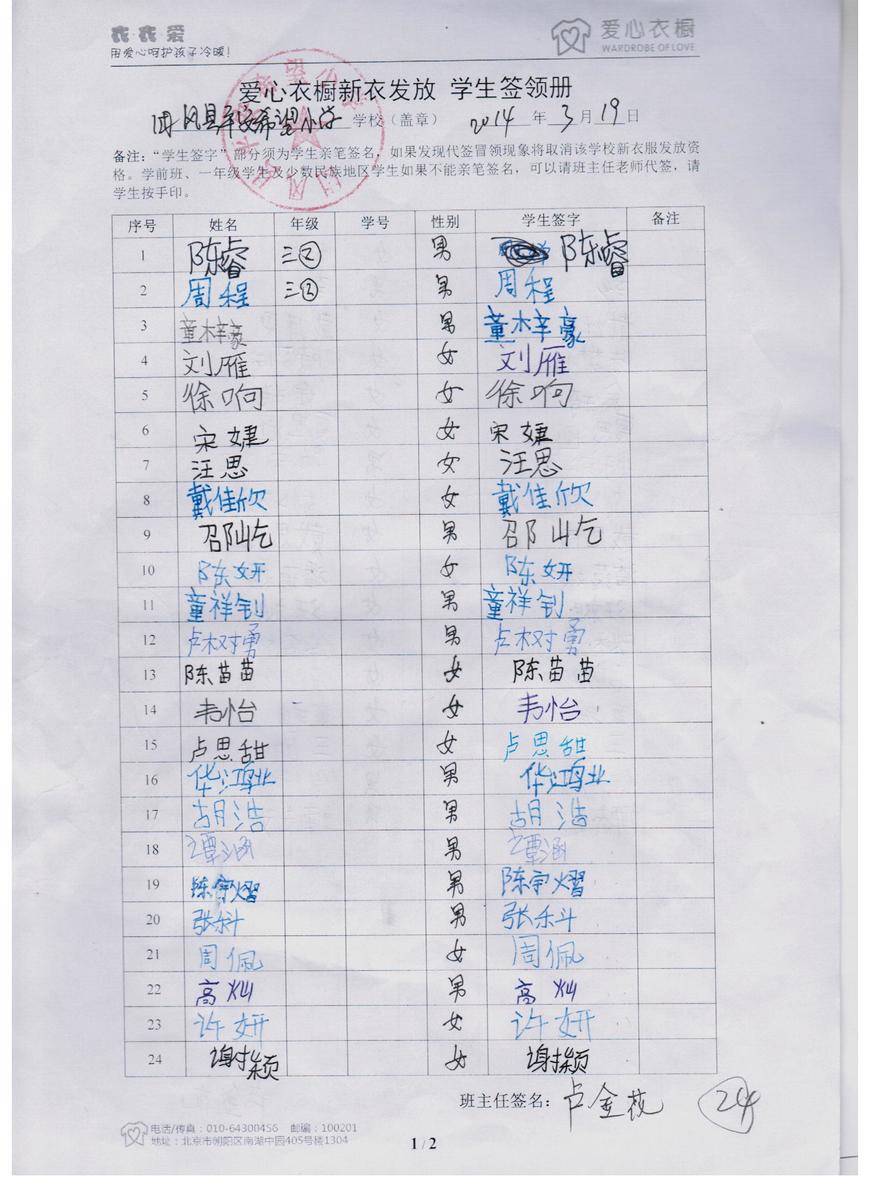 衣·衣·爱
用爱心呵护孩子冷暖!
爱心衣橱
WARDROBE OF LOVE
爱心衣橱新衣发放 学生签领册
团风县 希望小学 学校（盖章） 2014 年 3 月 19 日
备注：“学生签字”部分须为学生亲笔签名，如果发现代签冒领现象将取消该学校新衣服发放资
格。学前班、一年级学生及少数民族地区学生如果不能亲笔签名，可以请班主任老师代签，请
学生按手印。
序号 姓名 年级 学号 性别 学生签字 备注
1 陈睿 三② 男 陈睿
2 周程 三② 男 周程
3 童梓豪 男 童梓豪
4 刘雁 女 刘雁
5 徐响 女 徐响
6 宋婕 女 宋婕
7 汪思 女 汪思
8 戴佳欣 女 戴佳欣
9 邵屹 男 邵屹
10 陈妍 女 陈妍
11 童祥钊 男 童祥钊
12 卢树勇 男 卢树勇
13 陈苗苗 女 陈苗苗
14 韦怡 女 韦怡
15 卢思甜 女 卢思甜
16 华鸿业 男 华鸿业
17 胡浩 男 胡浩
18 谭涵 男 谭涵
19 陈宇熠 男 陈宇熠
20 张乐斗 男 张乐斗
21 周佩 女 周佩
22 高灿 男 高灿
23 许妍 女 许妍
24 谢颖 女 谢颖
班主任签名：卢金枝 24
电话/传真：010-64300456 邮编：100201
地址：北京市朝阳区南湖中园405号楼1304
1 / 2